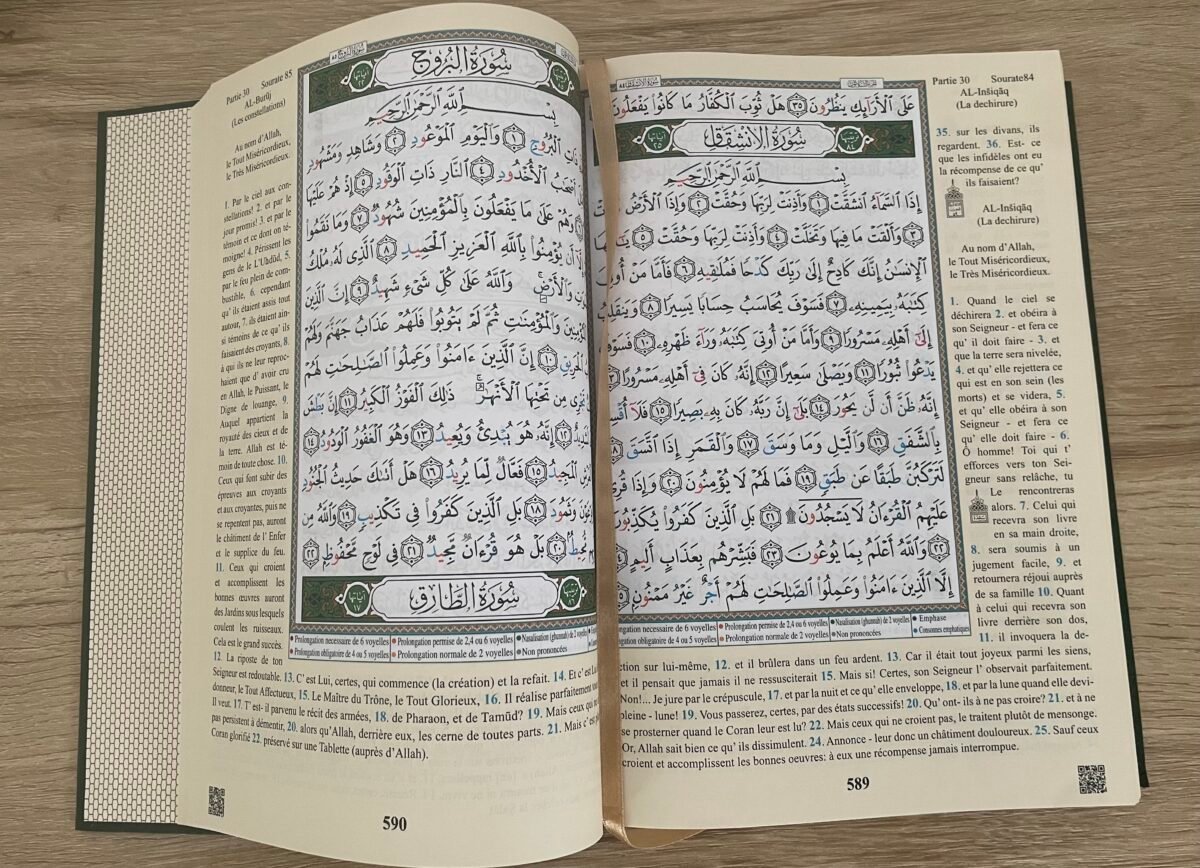 Partie 30 Sourate84
AL-Inšiqāq
(La dechirure)
35. sur les divans, ils
regardent. 36. Est- ce
que les infidèles ont eu
la récompense de ce qu'
ils faisaient?
AL-Inšiqāq
(La dechirure)
Au nom d'Allah,
le Tout Miséricordieux,
le Très Miséricordieux.
1. Quand le ciel se
déchirera 2. et obéira à
son Seigneur - et fera ce
qu' il doit faire - 3. et
que la terre sera nivelée,
4. et qu' elle rejettera ce
qui est en son sein (les
morts) et se videra, 5.
et qu' elle obéira à son
Seigneur - et fera ce
qu' elle doit faire - 6.
Ô homme! Toi qui t'
efforces vers ton Sei-
gneur sans relâche, tu
Le rencontreras
alors. 7. Celui qui
recevra son livre
en sa main droite,
8. sera soumis à un
jugement facile, 9. et
retournera réjoui auprès
de sa famille 10. Quant
à celui qui recevra son
livre derrière son dos,
11. il invoquera la de-
عَلَى ٱلْأَرَآئِكِ يَنظُرُونَ ٣٥ هَلْ ثُوِّبَ ٱلْكُفَّارُ مَا كَانُوا۟ يَفْعَلُونَ
سُورَةُ الانْشِقَاقِ
بِسْمِ ٱللَّهِ ٱلرَّحْمَٰنِ ٱلرَّحِيمِ
إِذَا ٱلسَّمَآءُ ٱنشَقَّتْ ١ وَأَذِنَتْ لِرَبِّهَا وَحُقَّتْ ٢ وَإِذَا ٱلْأَرْضُ
٣ وَأَلْقَتْ مَا فِيهَا وَتَخَلَّتْ ٤ وَأَذِنَتْ لِرَبِّهَا وَحُقَّتْ ٥
ٱلْإِنسَٰنُ إِنَّكَ كَادِحٌ إِلَىٰ رَبِّكَ كَدْحًا فَمُلَٰقِيهِ ٦ فَأَمَّا مَنْ
كِتَٰبَهُۥ بِيَمِينِهِۦ ٧ فَسَوْفَ يُحَاسَبُ حِسَابًا يَسِيرًا ٨ وَيَنقَلِبُ
إِلَىٰٓ أَهْلِهِۦ مَسْرُورًا ٩ وَأَمَّا مَنْ أُوتِىَ كِتَٰبَهُۥ وَرَآءَ ظَهْرِهِۦ ١٠ فَسَوْفَ
يَدْعُوا۟ ثُبُورًا ١١ وَيَصْلَىٰ سَعِيرًا ١٢ إِنَّهُۥ كَانَ فِىٓ أَهْلِهِۦ مَسْرُورًا ١٣
إِنَّهُۥ ظَنَّ أَن لَّن يَحُورَ ١٤ بَلَىٰٓ إِنَّ رَبَّهُۥ كَانَ بِهِۦ بَصِيرًا ١٥ فَلَآ أُقْسِمُ
بِٱلشَّفَقِ ١٦ وَٱلَّيْلِ وَمَا وَسَقَ ١٧ وَٱلْقَمَرِ إِذَا ٱتَّسَقَ ١٨
لَتَرْكَبُنَّ طَبَقًا عَن طَبَقٍ ١٩ فَمَا لَهُمْ لَا يُؤْمِنُونَ ٢٠ وَإِذَا قُرِئَ
عَلَيْهِمُ ٱلْقُرْءَانُ لَا يَسْجُدُونَ ۩ ٢١ بَلِ ٱلَّذِينَ كَفَرُوا۟ يُكَذِّبُونَ
٢٢ وَٱللَّهُ أَعْلَمُ بِمَا يُوعُونَ ٢٣ فَبَشِّرْهُم بِعَذَابٍ أَلِيمٍ ٢٤
إِلَّا ٱلَّذِينَ ءَامَنُوا۟ وَعَمِلُوا۟ ٱلصَّٰلِحَٰتِ لَهُمْ أَجْرٌ غَيْرُ مَمْنُونٍۭ ٢٥
necessaire de 6 voyelles Prolongation permise de 2,4 ou 6 voyelles Nasalisation (ghunnah) de 2 voyelles Emphase
obligatoire de 4 ou 5 voyelles Prolongation normale de 2 voyelles Non prononcées Consonnes emphatiques
ction sur lui-même, 12. et il brûlera dans un feu ardent. 13. Car il était tout joyeux parmi les siens,
et il pensait que jamais il ne ressusciterait 15. Mais si! Certes, son Seigneur l' observait parfaitement.
Non!... Je jure par le crépuscule, 17. et par la nuit et ce qu' elle enveloppe, 18. et par la lune quand elle devi-
pleine - lune! 19. Vous passerez, certes, par des états successifs! 20. Qu' ont- ils à ne pas croire? 21. et à ne
se prosterner quand le Coran leur est lu? 22. Mais ceux qui ne croient pas, le traitent plutôt de mensonge.
Or, Allah sait bien ce qu' ils dissimulent. 24. Annonce - leur donc un châtiment douloureux. 25. Sauf ceux
croient et accomplissent les bonnes oeuvres: à eux une récompense jamais interrompue.
589
Partie 30 Sourate 85
AL-Burūj
(Les constellations)
Au nom d'Allah,
le Tout Miséricordieux,
le Très Miséricordieux.
1. Par le ciel aux con-
stellations! 2. et par le
jour promis! 3. et par le
témoin et ce dont on té-
moigne! 4. Périssent les
gens de le L'Uḫdūd, 5.
par le feu plein de com-
bustible, 6. cependant
qu' ils étaient assis tout
autour, 7. ils étaient ain-
si témoins de ce qu' ils
faisaient des croyants, 8.
à qui ils ne leur reproc-
haient que d' avoir cru
en Allah, le Puissant, le
Digne de louange, 9.
Auquel appartient la
royauté des cieux et de
la terre. Allah est té-
moin de toute chose. 10.
Ceux qui font subir des
épreuves aux croyants
et aux croyantes, puis ne
se repentent pas, auront
le châtiment de l' Enfer
et le supplice du feu.
11. Ceux qui croient
et accomplissent les
bonnes œuvres auront
des Jardins sous lesquels
coulent les ruisseaux.
Cela est le grand succès.
سُورَةُ البُرُوجِ
بِسْمِ ٱللَّهِ ٱلرَّحْمَٰنِ ٱلرَّحِيمِ
ذَاتِ ٱلْبُرُوجِ ١ وَٱلْيَوْمِ ٱلْمَوْعُودِ ٢ وَشَاهِدٍ وَمَشْهُودٍ
أَصْحَٰبُ ٱلْأُخْدُودِ ٤ ٱلنَّارِ ذَاتِ ٱلْوَقُودِ ٥ إِذْ هُمْ عَلَيْهَا
٦ وَهُمْ عَلَىٰ مَا يَفْعَلُونَ بِٱلْمُؤْمِنِينَ شُهُودٌ ٧ وَمَا نَقَمُوا۟
إِلَّآ أَن يُؤْمِنُوا۟ بِٱللَّهِ ٱلْعَزِيزِ ٱلْحَمِيدِ ٨ ٱلَّذِى لَهُۥ مُلْكُ
وَٱلْأَرْضِ ۚ وَٱللَّهُ عَلَىٰ كُلِّ شَىْءٍ شَهِيدٌ ٩ إِنَّ ٱلَّذِينَ
وَٱلْمُؤْمِنَٰتِ ثُمَّ لَمْ يَتُوبُوا۟ فَلَهُمْ عَذَابُ جَهَنَّمَ وَلَهُمْ
ٱلْحَرِيقِ ١٠ إِنَّ ٱلَّذِينَ ءَامَنُوا۟ وَعَمِلُوا۟ ٱلصَّٰلِحَٰتِ لَهُمْ
تَجْرِى مِن تَحْتِهَا ٱلْأَنْهَٰرُ ۚ ذَٰلِكَ ٱلْفَوْزُ ٱلْكَبِيرُ ١١ إِنَّ بَطْشَ
١٢ إِنَّهُۥ هُوَ يُبْدِئُ وَيُعِيدُ ١٣ وَهُوَ ٱلْغَفُورُ ٱلْوَدُودُ ١٤
ٱلْمَجِيدُ ١٥ فَعَّالٌ لِّمَا يُرِيدُ ١٦ هَلْ أَتَىٰكَ حَدِيثُ ٱلْجُنُودِ
وَثَمُودَ ١٨ بَلِ ٱلَّذِينَ كَفَرُوا۟ فِى تَكْذِيبٍ ١٩ وَٱللَّهُ مِن
مُّحِيطٌۢ ٢٠ بَلْ هُوَ قُرْءَانٌ مَّجِيدٌ ٢١ فِى لَوْحٍ مَّحْفُوظٍۭ ٢٢
سُورَةُ الطَّارِقِ
Prolongation necessaire de 6 voyelles Prolongation permise de 2,4 ou 6 voyelles Nasalisation (ghunnah) de 2 voyelles
Prolongation obligatoire de 4 ou 5 voyelles Prolongation normale de 2 voyelles Non prononcées
12. La riposte de ton
Seigneur est redoutable. 13. C' est Lui, certes, qui commence (la création) et la refait. 14. Et c' est Lui
donneur, le Tout Affectueux, 15. Le Maître du Trône, le Tout Glorieux, 16. Il réalise parfaitement
Il veut. 17. T' est- il parvenu le récit des armées, 18. de Pharaon, et de Tamūd? 19. Mais ceux qui
pas persistent à démentir, 20. alors qu'Allah, derrière eux, les cerne de toutes parts. 21. Mais c' est
Coran glorifié 22. préservé sur une Tablette (auprès d'Allah).
590